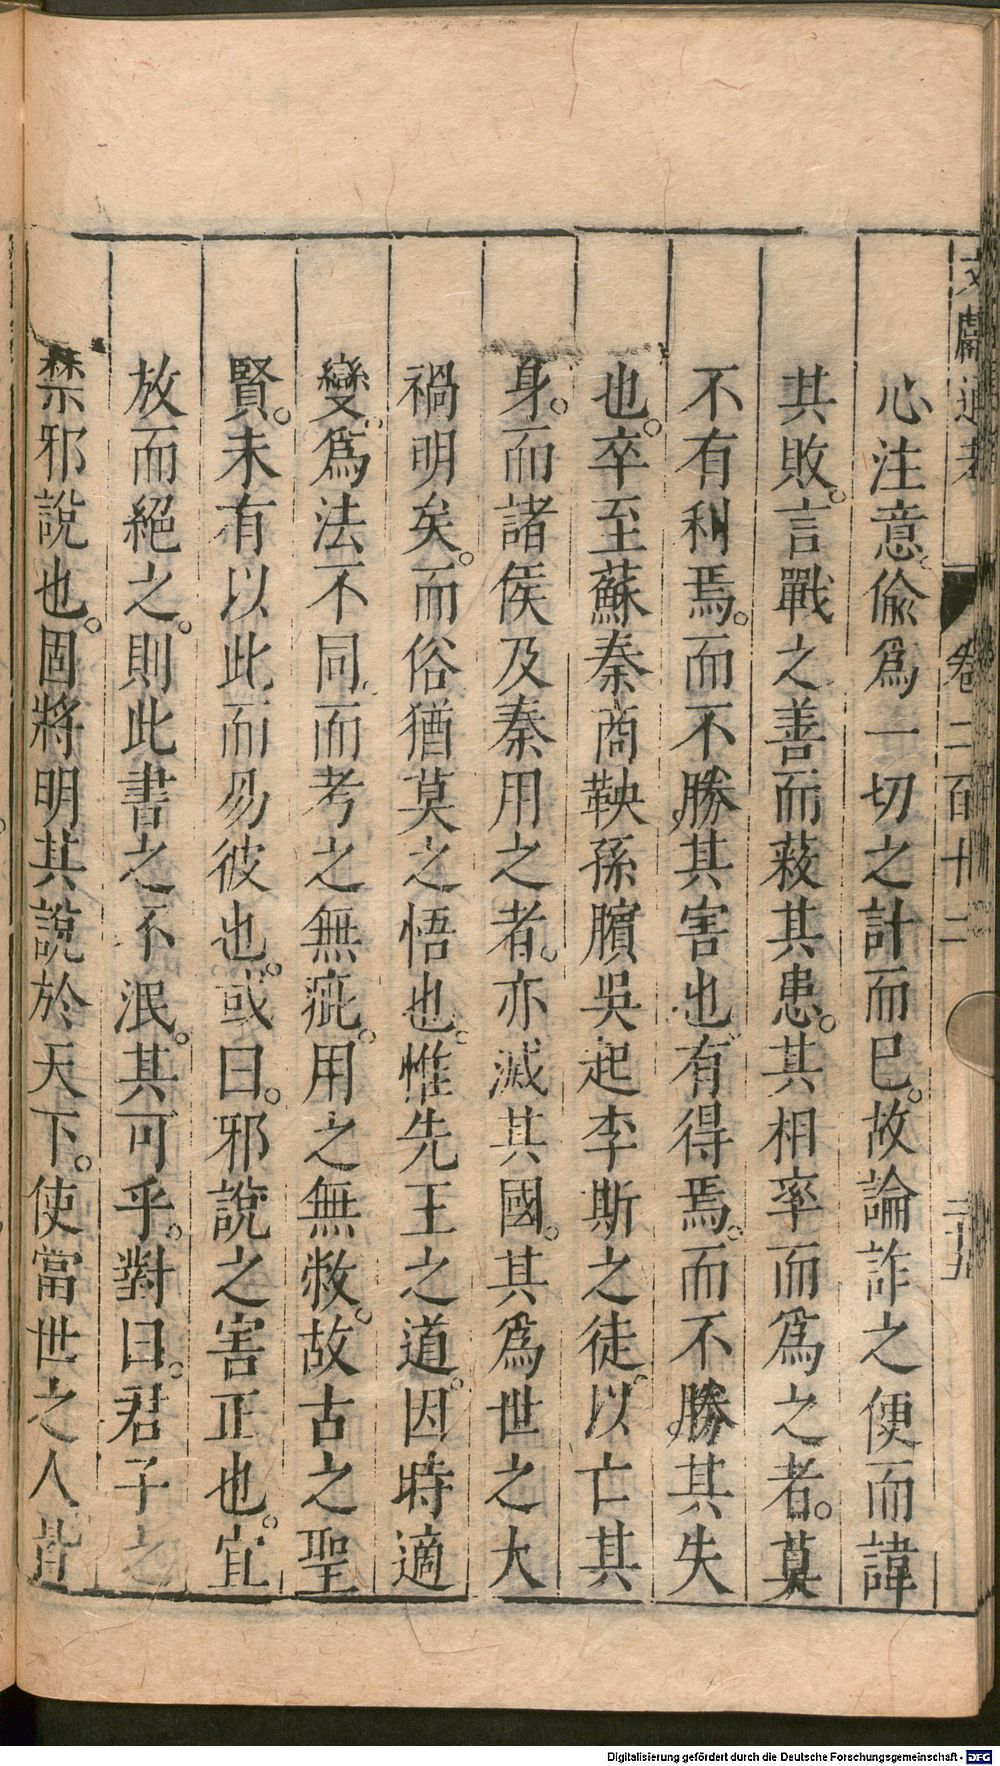 文獻通考 卷二百十二
心注意偸爲一切之計而已。故論詐之便而諱
其敗。言戰之善而蔽其患。其相率而爲之者。莫
不有利焉。而不勝其害也。有得焉。而不勝其失
也。卒至蘇秦商鞅孫臏吳起李斯之徒以亡其
身。而諸侯及秦用之者。亦滅其國。其爲世之大
禍明矣。而俗猶莫之悟也。惟先王之道。因時適
變。爲法不同。而考之無疵。用之無敝。故古之聖
賢。未有以此而易彼也。或曰。邪說之害正也。宜
放而絕之。則此書之不泯。其可乎。對曰。君子之
禁邪說也。固將明其說於天下。使當世之人皆
Digitalisierung gefördert durch die Deutsche Forschungsgemeinschaft - DFG